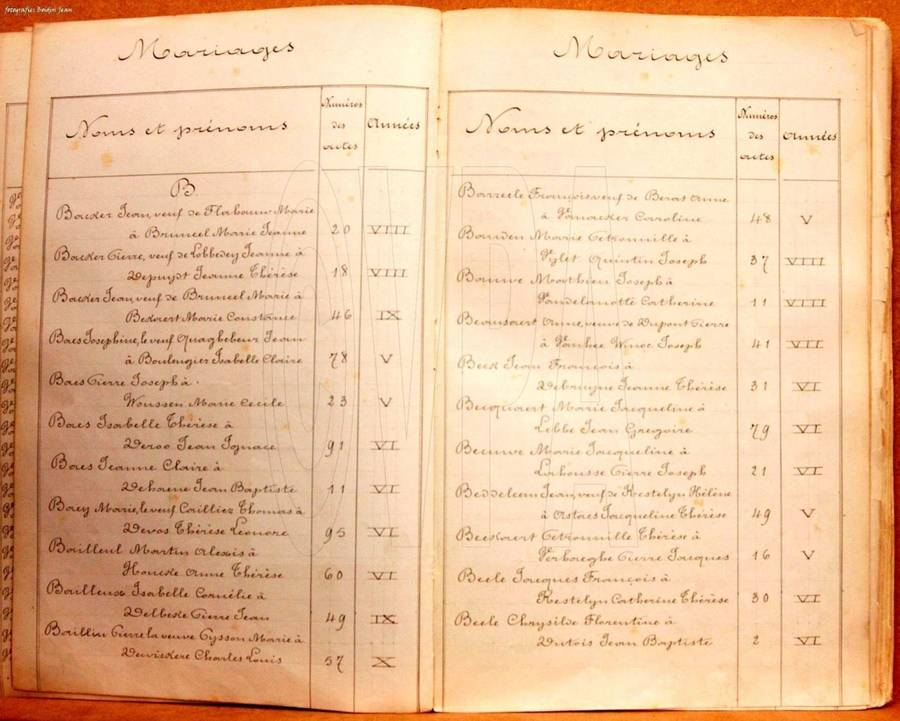 fotografie: Boidin Jean
Mariages
Noms et prénoms
Numéros des actes
Années
B
Backer Jean, veuf de Flahauw Marie
à Bruneel Marie Jeanne 20 VIII
Backer Pierre, veuf de Lobbedey Jeanne à
Depuydt Jeanne Thérèse 18 VIII
Backer Jean, veuf de Bruneel Marie à
Bekaert Marie Constance 46 IX
Baes Josephine, le veuf Quaghebeur Jean
à Boulengier Isabelle Claire 78 V
Baes Pierre Joseph à
Woussen Marie Cecile 23 V
Baes Isabelle Thérèse à
Deroo Jean Ignace 91 VI
Baes Jeanne Claire à
Dehaene Jean Baptiste 11 VI
Baey Marie, le veuf Cailliez Thomas à
Devos Thérèse Leonore 95 VI
Bailleul Martin Alexis à
Houcke Anne Thérèse 60 VI
Bailleux Isabelle Cornélie à
Delbeke Pierre Jean 49 IX
Baillieu Pierre la veuve Cysson Marie à
Dewickere Charles Louis 57 X
Mariages
Noms et prénoms
Numéros des actes
Années
François veuf de Beras Anne
à Vanacker Caroline 48 V
Bauden Marie Petronnille à
Quintin Joseph 37 VIII
Bauwe Matthieu Joseph à
Vandelanotte Catherine 11 VIII
Beausaert Anne, veuve de Dupont Pierre
à Vanhee Winoc Joseph 41 VII
Beck Jean François à
Debruyne Jeanne Thérèse 31 VI
Becquaert Marie Jacqueline à
Lebbe Jean Gregoire 79 VI
Becuwe Marie Jacqueline à
Lahousse Pierre Joseph 21 VI
Beddeleem Jean, veuf de Kestelyn Hélène
à Astaes Jacqueline Thérèse 49 V
Beekaert Petronnille Thérèse à
Verhaeghe Pierre Jacques 16 V
Beele Jacques François à
Kestelyn Catherine Thérèse 30 VI
Beele Chrysilde Florentine à
Dutois Jean Baptiste 2 VI